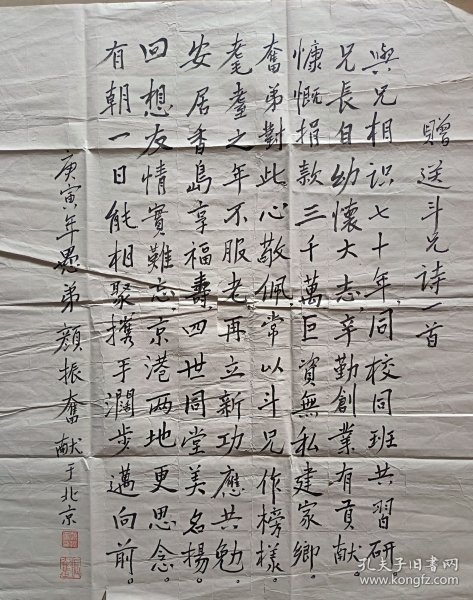 贈送斗兄詩一首
與兄相识七十年,同校同班共習研
兄長自幼懷大志,辛勤創業有貢献。
慷慨捐款三千萬巨資無私建家鄉。
奮弟對此心敬佩,常以斗兄作榜樣。
耄耋之年不服老再立新功應共勉。
安居香島享福壽,四世同堂美名揚。
回想友情實難忘,京港两地更思念。
有朝一日能相聚携手濶步邁向前。
庚寅年愚弟顔振奮献于北京
孔夫子旧書网
www.kongfz.com